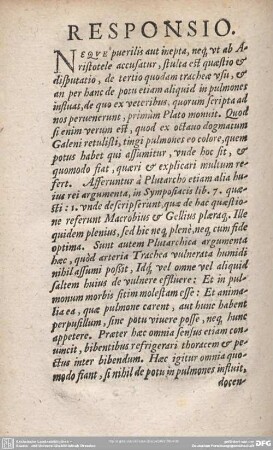 RESPONSIO.
NEQVE puerilis aut inepta, neq; vt ab A-
ristotele accusatur, stulta est quæstio &
disputatio, de tertio quodam tracheæ vsu, &
an per hanc de potu etiam aliquid in pulmones
influat, de quo ex veteribus, quorum scripta ad
nos peruenerunt, primùm Plato monuit. Quod
si enim verum est, quod ex octauo dogmatum
Galeni retulisti, tingi pulmones eo colore, quem
potus habet qui assumitur, vnde hoc sit, &
quomodo fiat, quæri & explicari multum re-
fert. Afferuntur à Plutarcho etiam alia hu-
ius rei argumenta, in Symposiacis lib. 7. quæ-
sti: 1. vnde descripserunt, quæ de hac quæstio-
ne referunt Macrobius & Gellius pleraq;. Ille
quidem plenius, sed hic neq; plenè, neq; cum fide
optima. Sunt autem Plutarchica argumenta
hæc, quòd arteria Trachea vulnerata humidi
nihil assumi possit, Idq; vel omne vel aliquid
saltem huius de vulnere effluere: Et in pul-
monum morbis sitim molestam esse: Et anima-
lia ea, quæ pulmone carent, aut hunc habent
perpusillum, sine potu viuere posse, neq; hunc
appetere. Præter hæc omnia sensus etiam con-
uincit, bibentibus refrigerari thoracem & pe-
ctus inter bibendum. Hæc igitur omnia quo-
modo fiant, si nihil de potu in pulmones influit,
docen-